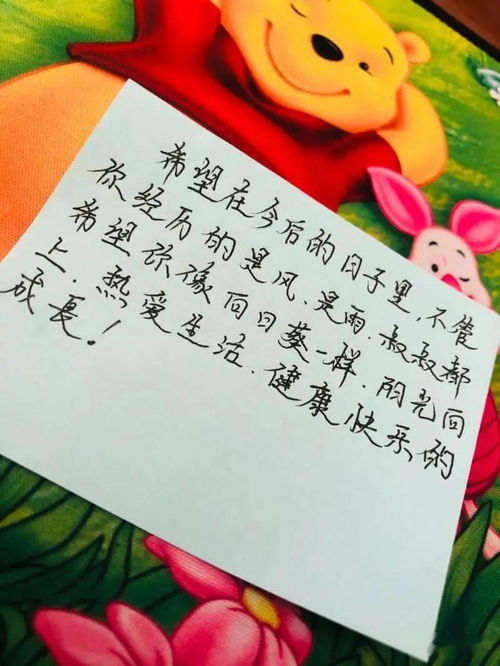 希望在今后的日子里,不管
你经历的是风、是雨、叔叔都
希望你像向日葵一样、阳光向
上、热爱生活、健康快乐的
成長!